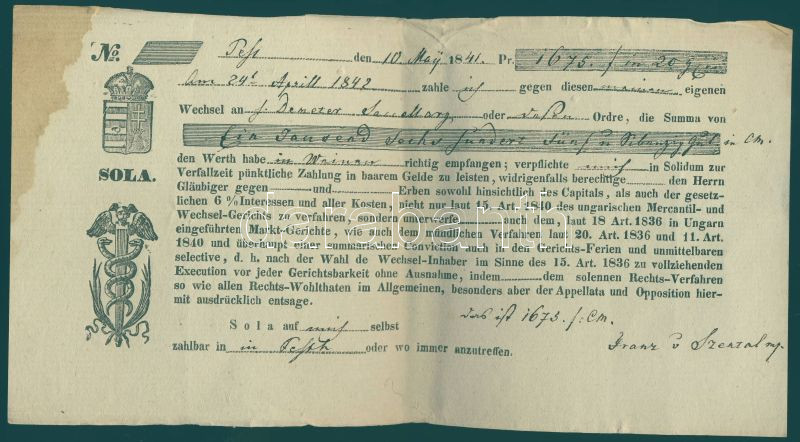 No. Pest den 10 May 1841. Pr. 1675. f in 20
Am 24t Aprill 1842 zahle ich gegen diesen meinen eigenen
Wechsel an H. Demeter oder dessen Ordre, die Summa von
Ein Tausend Sechs Hundert Fünf u Sibenzig in CM.
den Werth habe in Waaren richtig empfangen; verpflichte mich in Solidum zur
SOLA.
Verfallzeit pünktliche Zahlung in baarem Gelde zu leisten, widrigenfalls berechtige den Herrn
Gläubiger gegen und Erben sowohl hinsichtlich des Capitals, als auch der gesetz-
lichen 6 % Interessen und aller Kosten, nicht nur laut 15. Art. 1840 des ungarischen Mercantil- und
Wechsel-Gerichts zu verfahren, sondern unterwerfe auch dem, laut 18 Art. 1836 in Ungarn
eingeführten Markt-Gerichte, wie auch dem mündlichen Verfahren laut 20. Art. 1836 und 11. Art.
1840 und überhaupt einer summarischen Conviction auch in Gerichts-Ferien und unmittelbaren
selective, d. h. nach der Wahl de Wechsel-Inhaber im Sinne des 15. Art. 1836 zu vollziehenden
Execution vor jeder Gerichtsbarkeit ohne Ausnahme, indem dem solennen Rechts-Verfahren
so wie allen Rechts-Wohlthaten im Allgemeinen, besonders aber der Appellata und Opposition hier-
mit ausdrücklich entsage.
das ist 1675 f: CM.
Sola auf mich selbst
zahlbar in in Pesth oder wo immer anzutreffen.
Franz v
darabanth